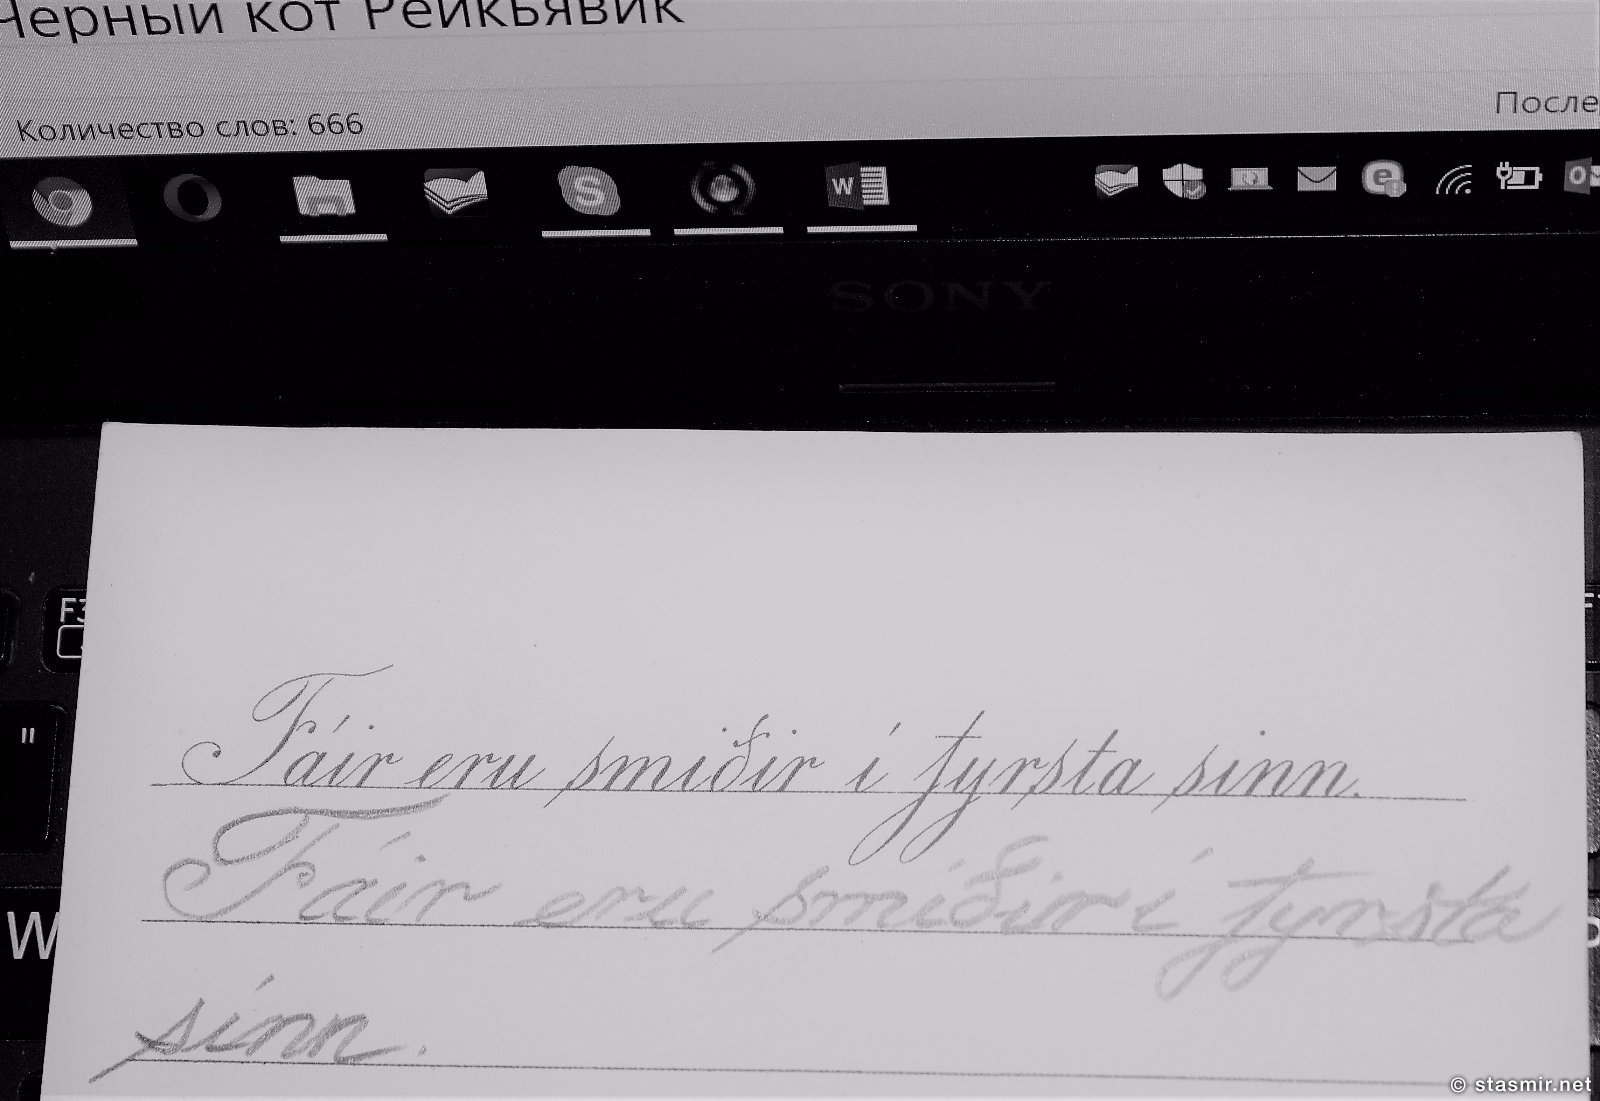 Черный кот Рейкьявик
Количество слов: 666
После
W
S
e
SONY
F3
"
W
Fáir eru smiðir í fyrsta sinn.
Fáir eru smiðir í fyrsta
sinn.
© stasmir.net